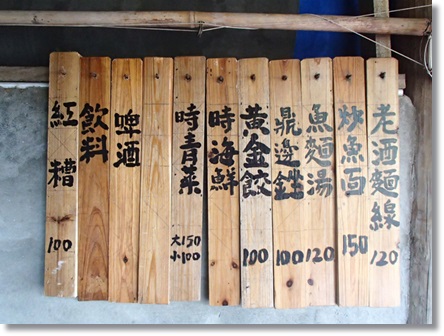 老酒麵線 120
炒魚面 150
魚麵湯 120
鼎邊銼 100
黃金餃 100
時海鮮
時青菜 大150 小100
啤酒
飲料
紅糟 100